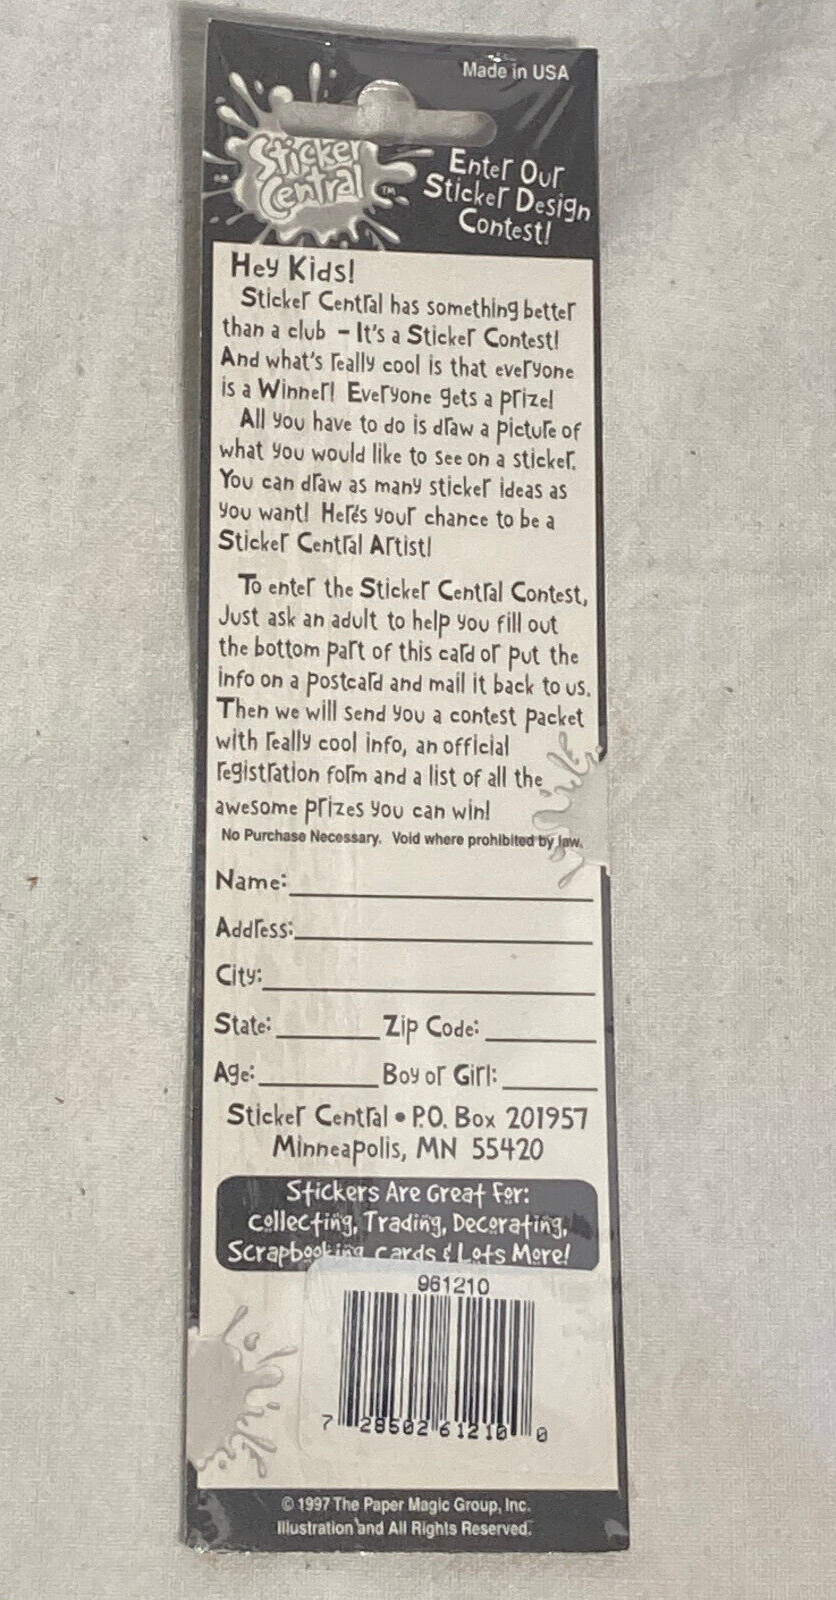 Made in USA
Sticker
Central™
Enter Our
Sticker Design
Contest!
Hey Kids!
Sticker Central has something better
than a club – It's a Sticker Contest!
And what's really cool is that everyone
is a Winner! Everyone gets a prize!
All you have to do is draw a picture of
what you would like to see on a sticker.
You can draw as many sticker ideas as
you want! Here's your chance to be a
Sticker Central Artist!
To enter the Sticker Central Contest,
Just ask an adult to help you fill out
the bottom part of this card or put the
info on a postcard and mail it back to us.
Then we will send you a contest packet
with really cool info, an official
registration form and a list of all the
awesome prizes you can win!
No Purchase Necessary. Void where prohibited by law.
Name:
Address:
City:
State: Zip Code:
Age: Boy or Girl:
Sticker Central • P.O. Box 201957
Minneapolis, MN 55420
Stickers Are Great For:
Collecting, Trading, Decorating,
Scrapbooking Cards & Lots More!
961210
7 28502 61210 0
© 1997 The Paper Magic Group, Inc.
Illustration and All Rights Reserved.